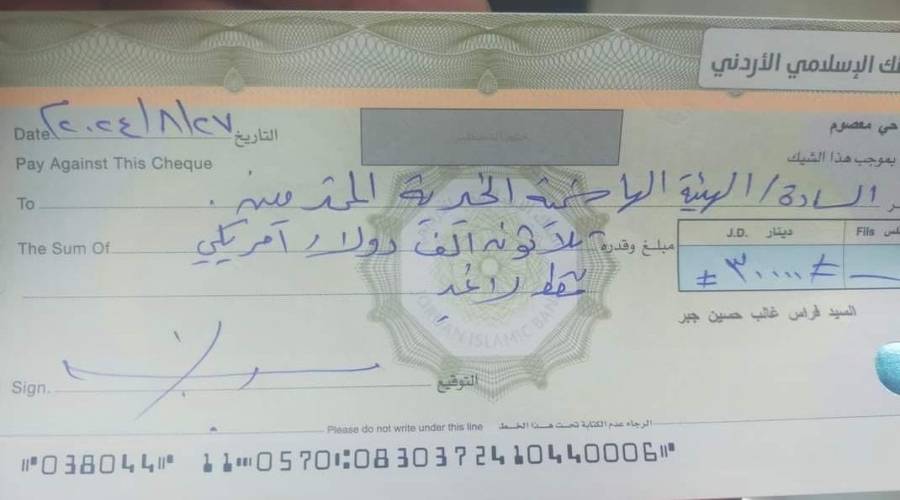 ك الإسلامي الأردني
Date ٢٠٢٤/٨/٢٧ التاريخ
حي معصوم
Pay Against This Cheque بموجب هذا الشيك
To السادة/ الهيئة الهاشمية الخيرية المحترمين.
The Sum Of مبلغ وقدره ثلاثون ألف دولار أمريكي
فقط لا غير
J.D. دينار Fils فلس
≠ ٣٠٠٠٠ ≠
السيد فراس غالب حسين جبر
JORDAN ISLAMIC BANK
Sign. التوقيع
Please do not write under this line الرجاء عدم الكتابة تحت هذا الخط
⑈038044⑈ 11⑉0570⑆0830372410440006⑈